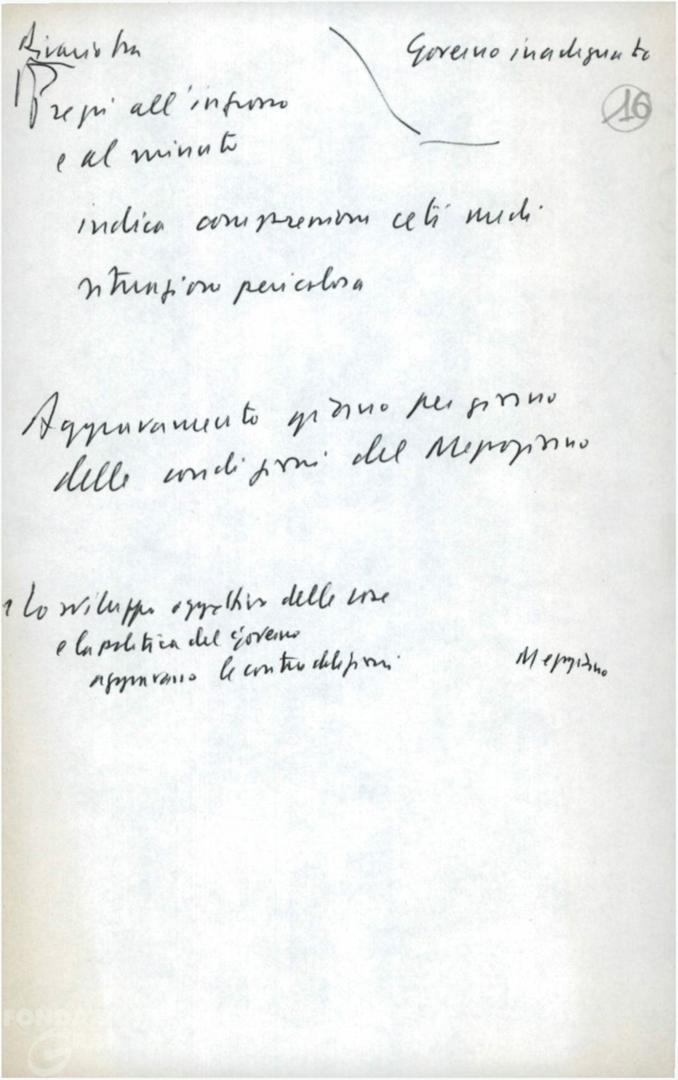 Governo inadeguato
16
Prezzi all'ingrosso
e al minuto
indica compressione ceti medi
situazione pericolosa
Aggravamento giorno per giorno
delle condizioni del Mezzogiorno
Lo sviluppo oggettivo delle cose
e la politica del governo
aggravano le contraddizioni
Mezzogiorno
FONDAZ
G